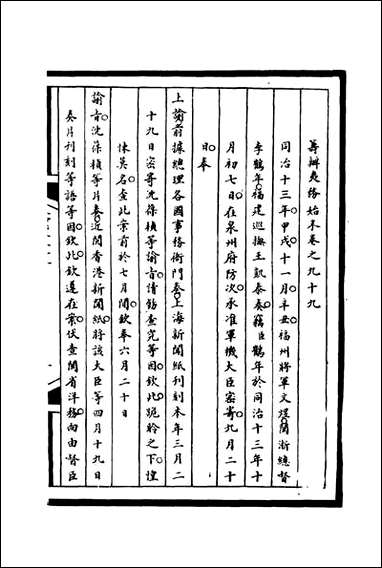 籌辦夷務始末卷之九十九
同治十三年甲戌十一月辛丑福州將軍文煜閩浙總督
李鶴年福建巡撫王凱泰奏竊臣鶴年於同治十三年十
月初七日在泉州府防次承准軍機大臣密寄九月二十
日奉
上諭前據總理各國事務衙門奏上海新聞紙刊刻本年三月二
十九日密寄沈葆楨等諭旨請飭查究等因欽此跪聆之下惶
悚莫名查此案前於七月閒欽奉六月二十日
諭旨沈葆楨等片奏近閱香港新聞紙將該大臣等四月十九日
奏片刊刻等語等因欽此欽遵在案伏查閩省洋務向由督臣